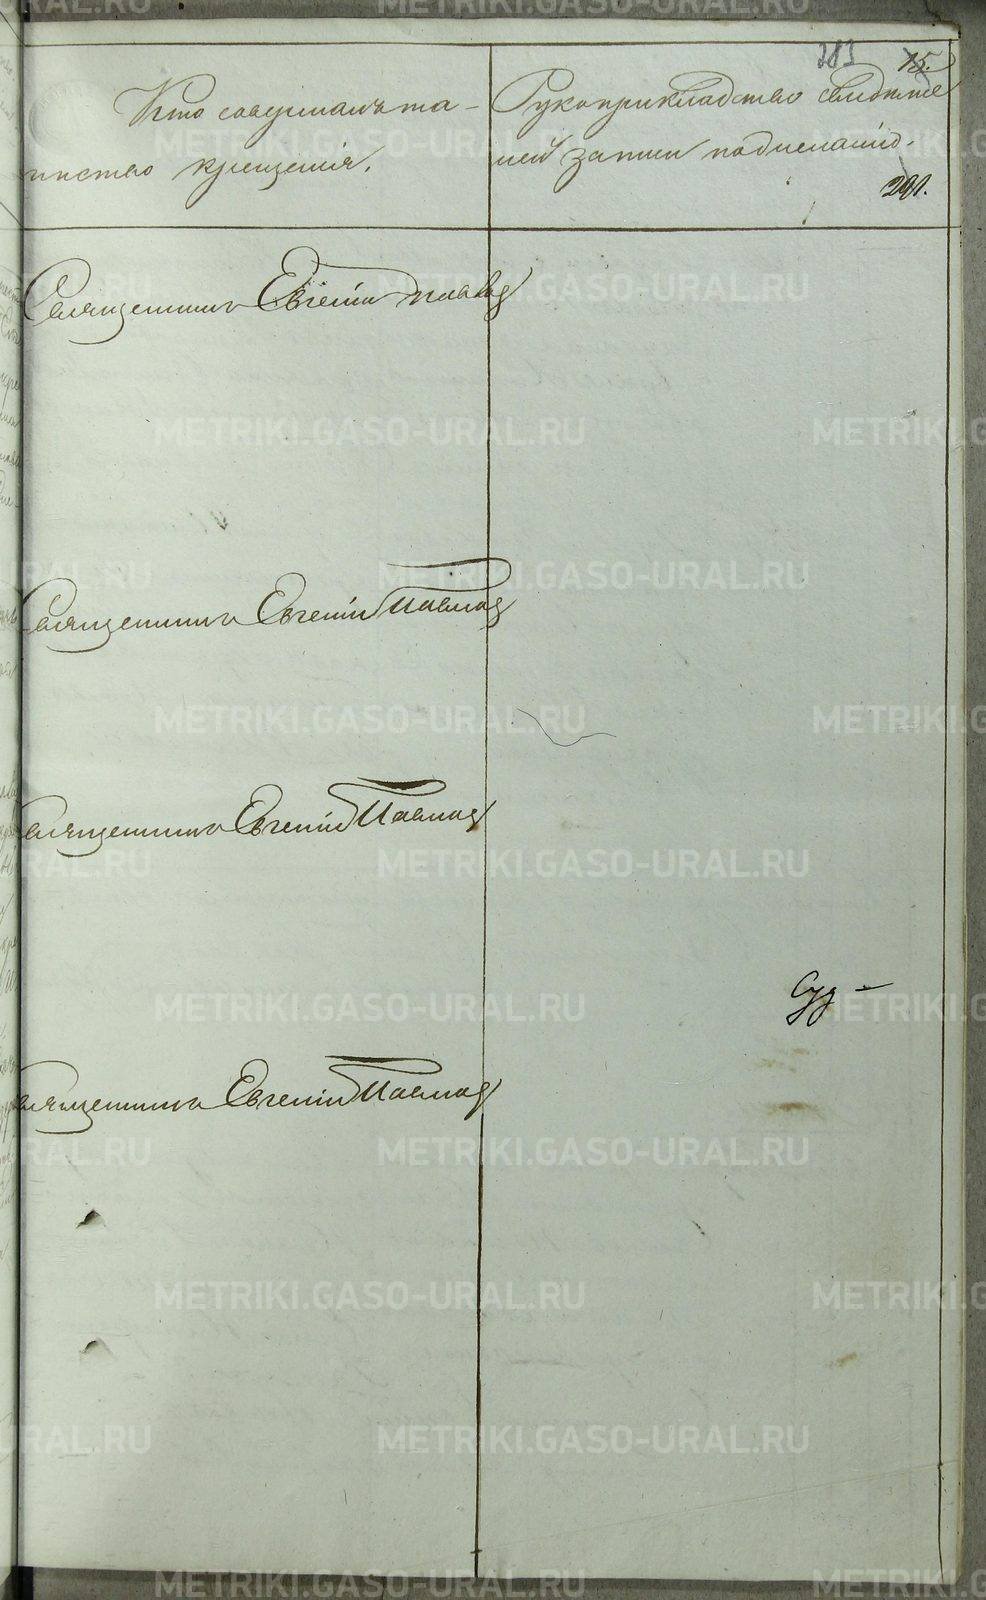 283 15.
Кто совершалъ та-
инство крещенія.
Рукоприкладство свидѣте
лей записи по желанію.
291.
Священникъ Евгеній Павлов
Священникъ Евгеній Павлов
Священникъ Евгеній Павлов
Священникъ Евгеній Павлов
METRIKI.GASO-URAL.RU